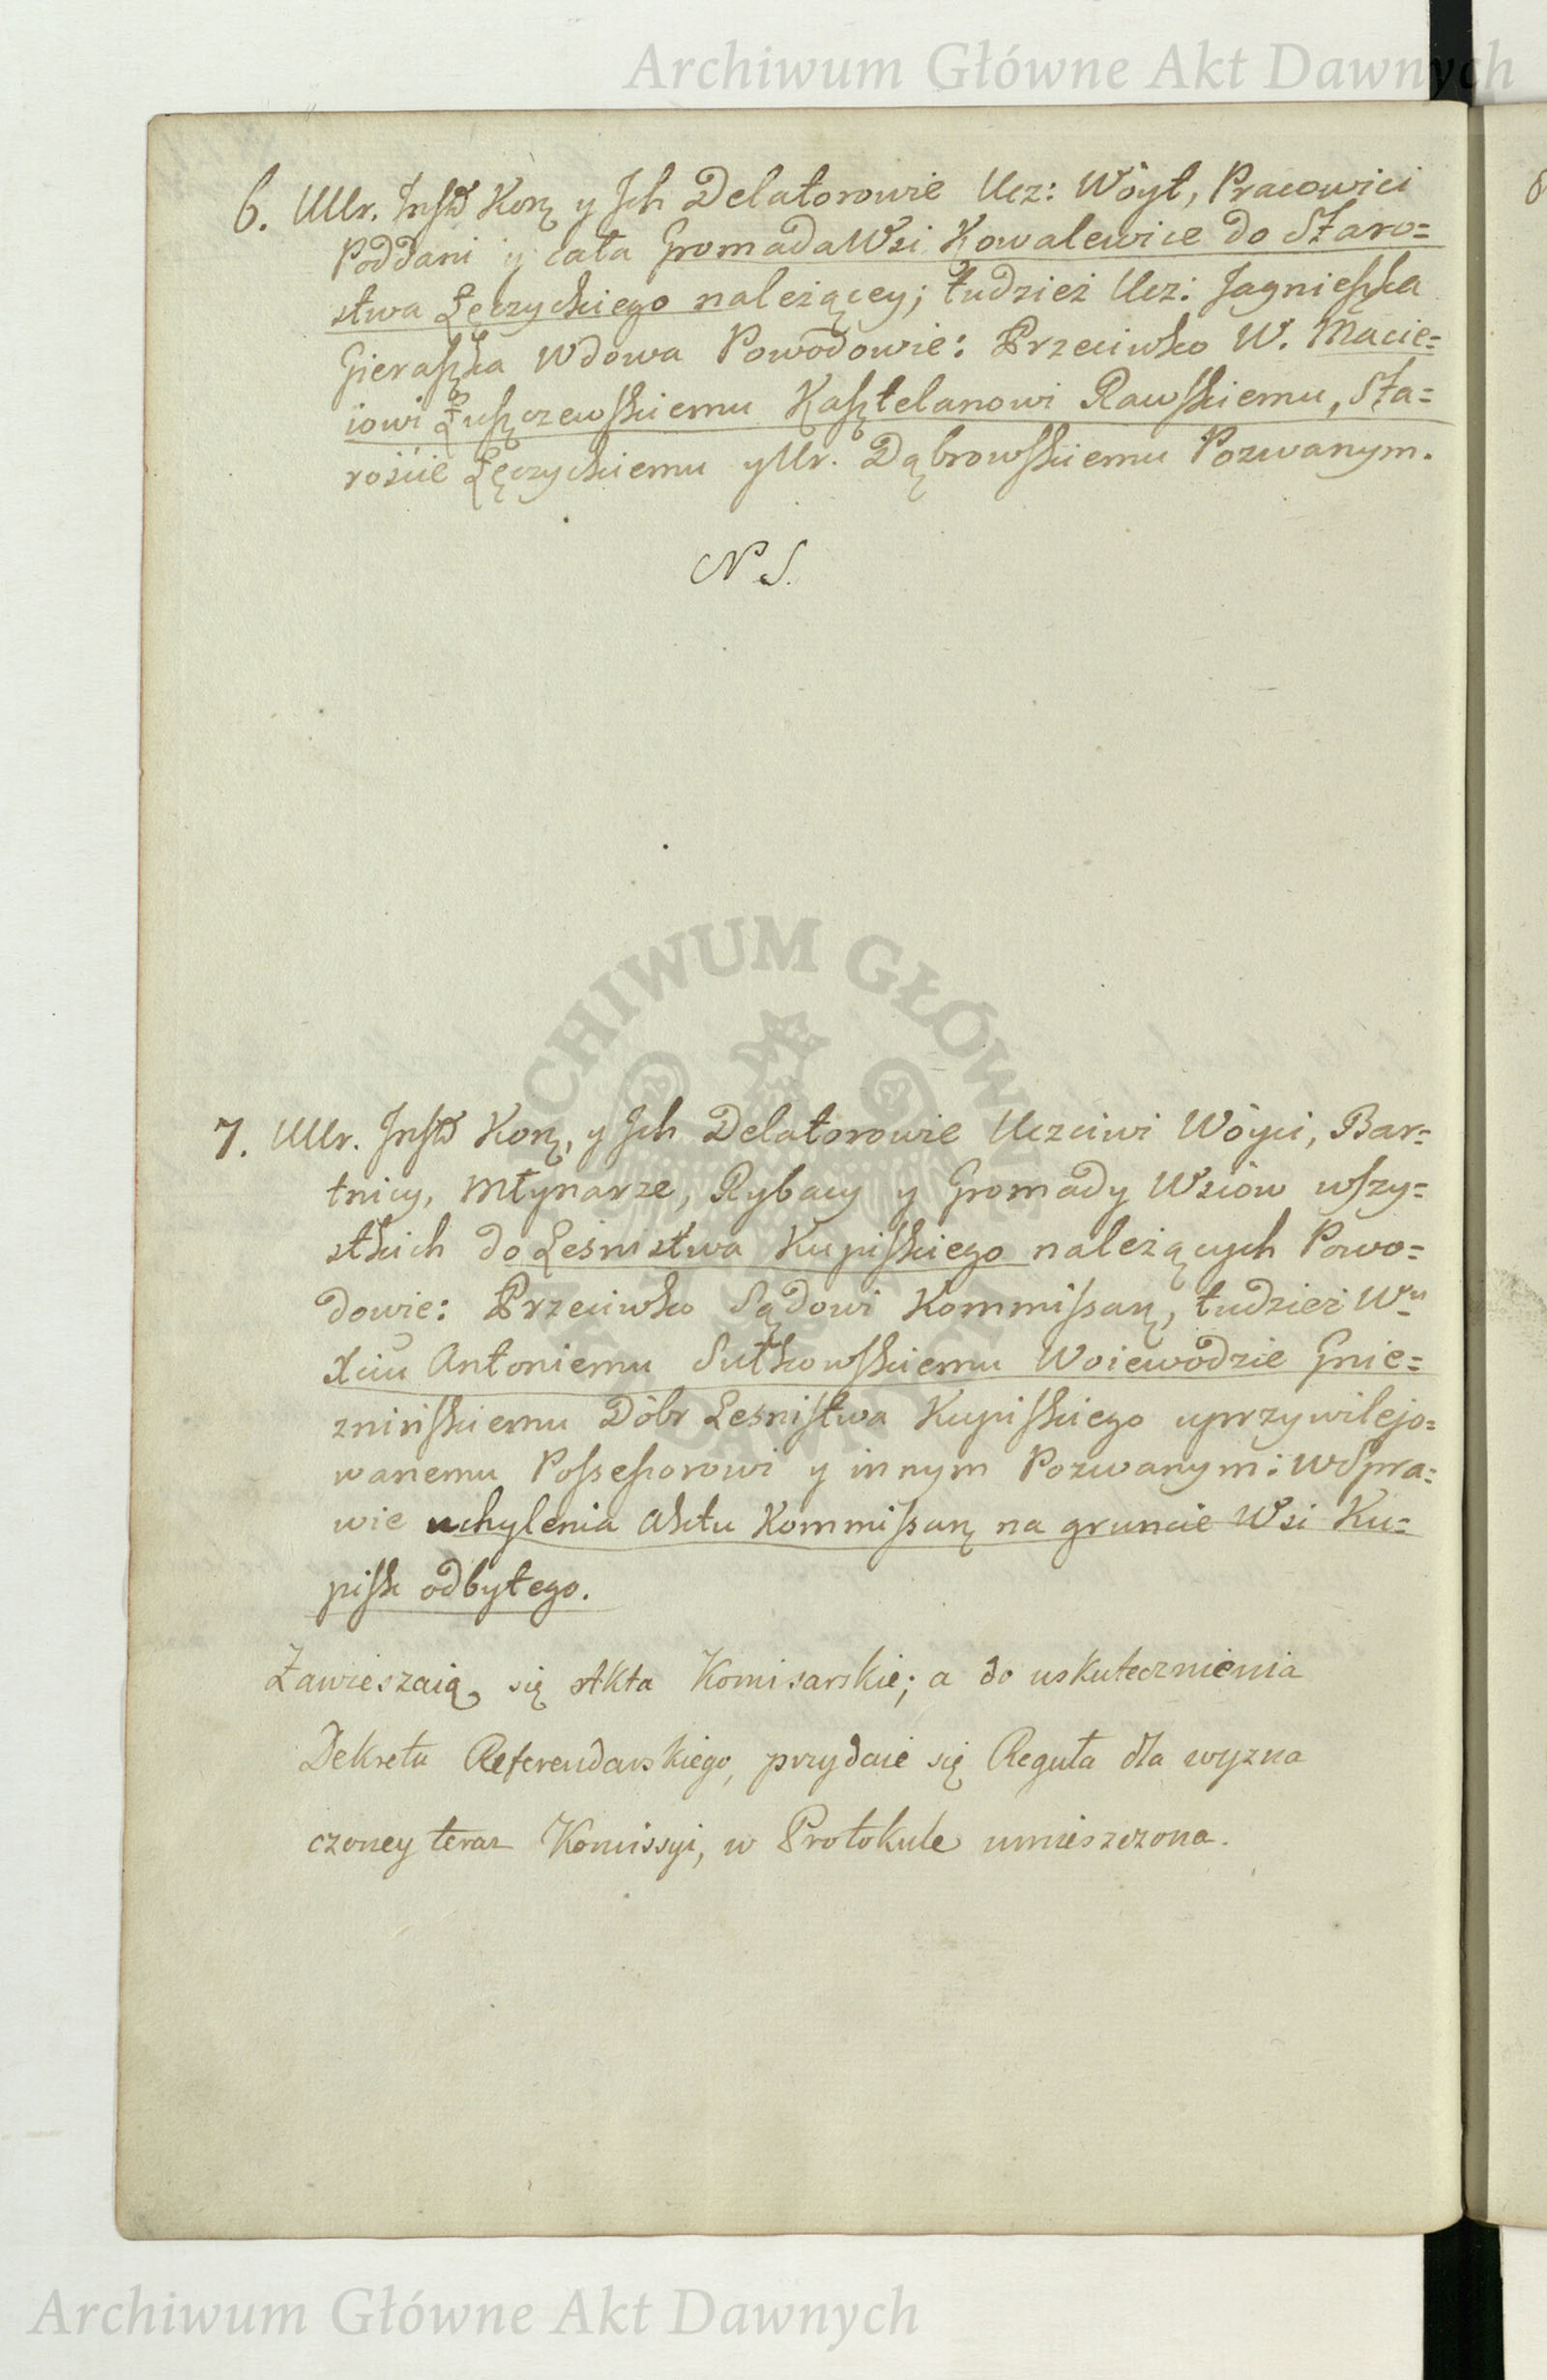 Archiwum Główne Akt Dawnych
6. UUr. Instt Korn: y Jch Delatorowie Ucz: Wóyt, Pracowici
Poddani y cała Gromada Wsi Kowalewice do Staro=
stwa Łęczyckiego należącey; tudzież Ucz: Jagnieszka
Gieraszka Wdowa Powodowie: Przeciwko W. Macie=
iowi Łuszczewskiemu Kasztelanowi Rawskiemu, Sta=
rościе Łęczyckiemu y Ur. Dąbrowskiemu Pozwanym.
N S.
ARCHIWUM GŁÓWNE AKT DAWNYCH
7. UUr. Instt Korn: y Jch Delatorowie Uczciwi Wóyci, Bar=
tnicy, Młynarze, Rybacy y Gromady Wsiów wszy=
stkich do Leśnistwa Kupiskiego należących Powo=
dowie: Przeciwko Sądowi Kommissar:, tudzież Wu
Xciu Antoniemu Sułkowskiemu Woiewodzie Gnie=
znińskiemu Dóbr Lesnistwa Kupiskiego uprzywilejo=
wanemu Possessorowi y innym Pozwanym: w Spra=
wie uchylenia Aktu Kommissar: na gruncie Wsi Ku=
pisk odbytego.
Zawieszaią się Akta Komisarskie; a do uskutecznienia
Dekretu Referendarskiego, przydaie się Reguła dla wyzna
czoney teraz Komissyi, w Protokule umieszczona.
Archiwum Główne Akt Dawnych